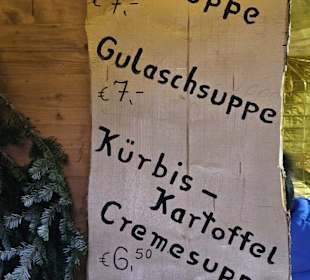 €7,-
Gulaschsuppe
€7,-
Kürbis-
Kartoffel
Cremesupp
€6,50